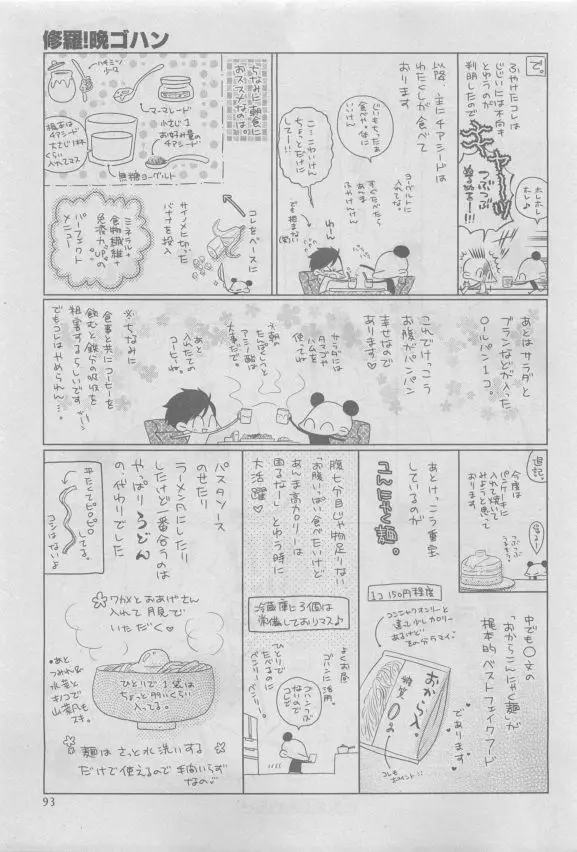 修羅！晩ゴハン
で。
ふやけたコレは
じじいには不向き
とゆうのが
判明したので
キャーッ
つぶつぶ
ホレホレ
ホレ♪
以降 主にチアシードは
わたくしが食べて
おります
じじいもちったあ
食べや。体に
いいけ
こ…こわいけん
ちょっとだけに
してー!!
ヨーグルトに
入れてな。
すぐたべたら
あんま
ふやけんけん
でも拒まない
わーん
ちなみに朝食に
おススメなのは。
ハチミツ
少々
マーマレード
小さじ1
お好み量の
チアシード
梶本は
チアシード
大さじ1杯
くらい
入れてマス
無糖ヨーグルト
コレをベースに
サイノメに切った
バナナを投入
ミネラル+
食物繊維+
免疫力UPの
パーフェクト
メニュー
あとはサラダと
ブランなどが入った
ロールパン1コ。
これでけっこう
お腹がパンパン
幸せなので
あります♡
サラダには
タマゴや
ハムを
使ってね
※朝の
たんぱくしつと
アミノ酸は
大事だで。
あと
入れたての
コーヒーね。
※ちなみに
食事と共にコーヒーを
飲むと鉄分の吸収を
阻害するらしいです
でもコレはやめられん…。
追記。
今度は
パンケーキに
入れて焼いて
みようと思って
おります。
つぶつぶ
うるさい
あとけっこう重宝
しているのが
こんにゃく麺。
中でも〇文の
「おからこんにゃく麺」が
梶本的ベストフェイクフード
であります♥
1コ 150円程度
コンニャクオンリーと
違って少しカロリー
あるけど
その分ウマイ。
おから入。
糖質
0g
コレも
ポイント!!
腹七分目じゃ物足りない
「お腹いっぱい食べたいけど
あんま高カロリーは
困るなーし」とゆう時に
大活躍♡
冷蔵庫に3個は
常備しておりマス♪
よくお昼
ゴハンに活用。
ゴハンつくば
ないので
コレで
ひとりで
たべるのに
ベンリーベンリー。
パスタソース
のせたり
ラーメン風にしたり
したけど一番合うのは
やっぱりうどん
の代わりでした
平たくてピロピロ
してる。
コシはないよ
ワカメとおあげさん
入れて月見で
いただく♡
ひとりで1袋は
ちょっと多いくらい
入ってる。
●あと
つみれ&
水菜と
キノコで
山菜風も
スキ。
麺はさっと水洗いする
だけで使えるので手間いらず
なの♡
93